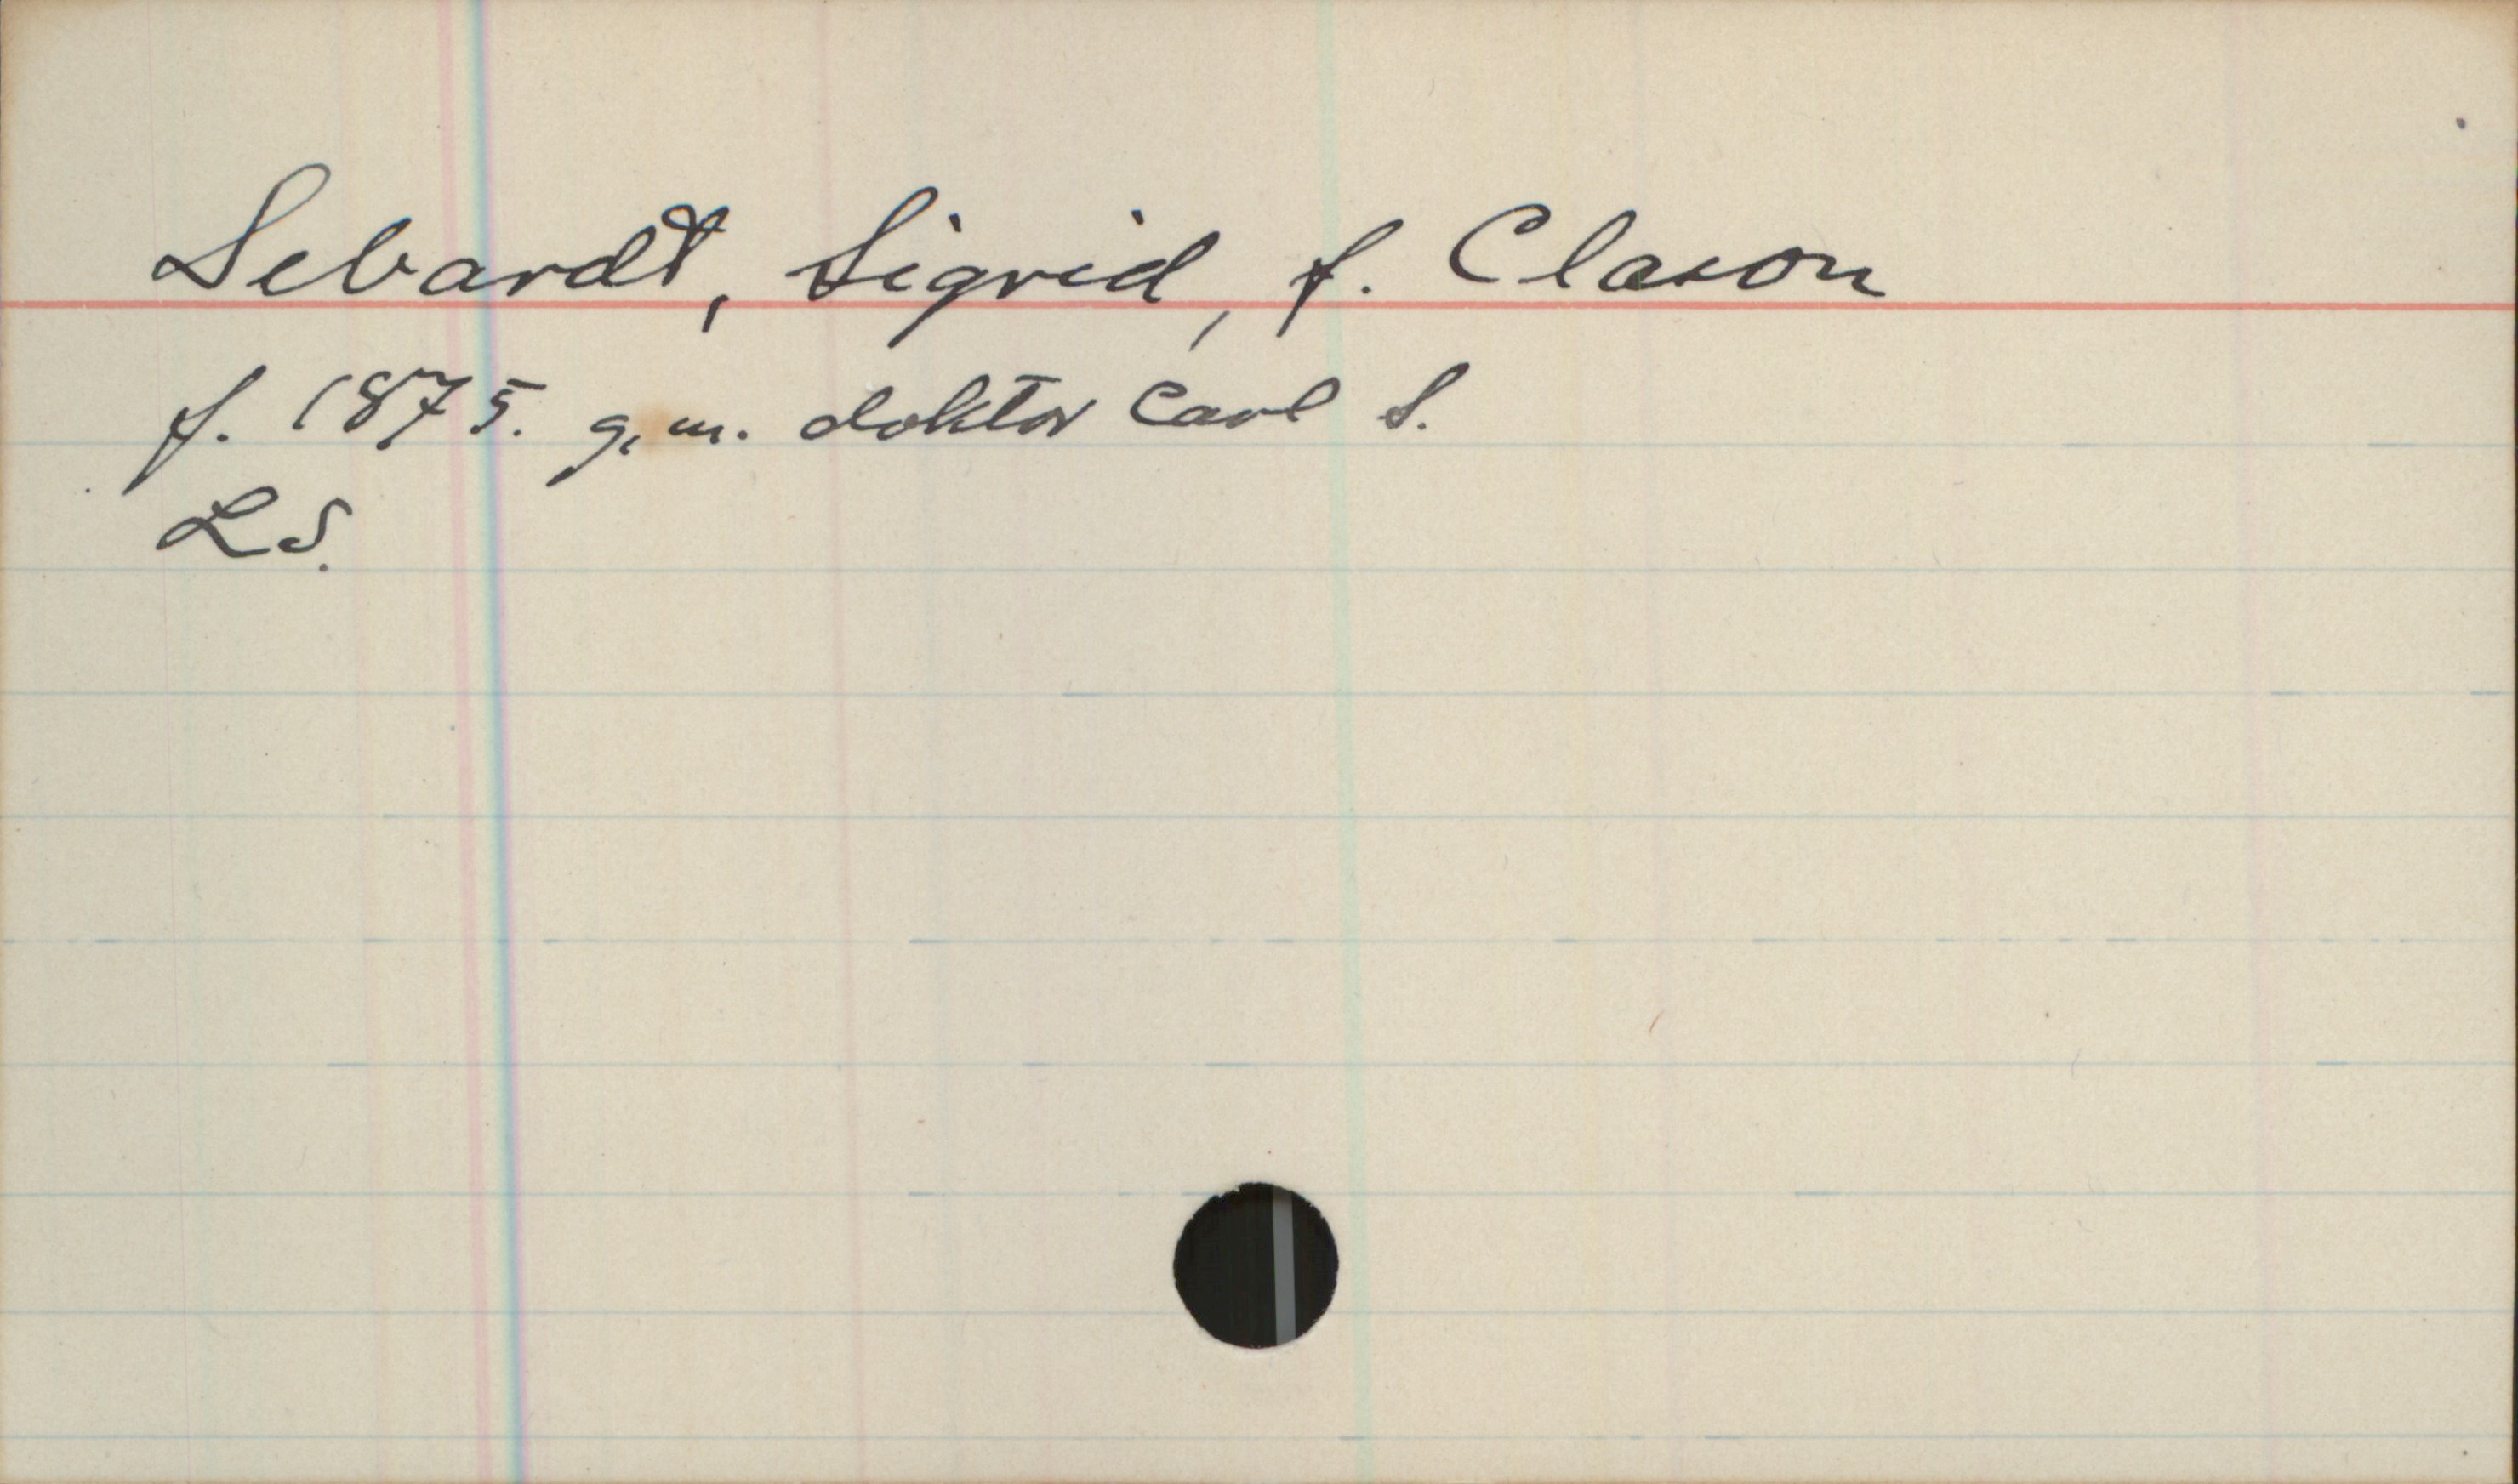 Sebardt, Sigrid, f. Clason
f. 1875. g.m. doktor Carl S.
LS.